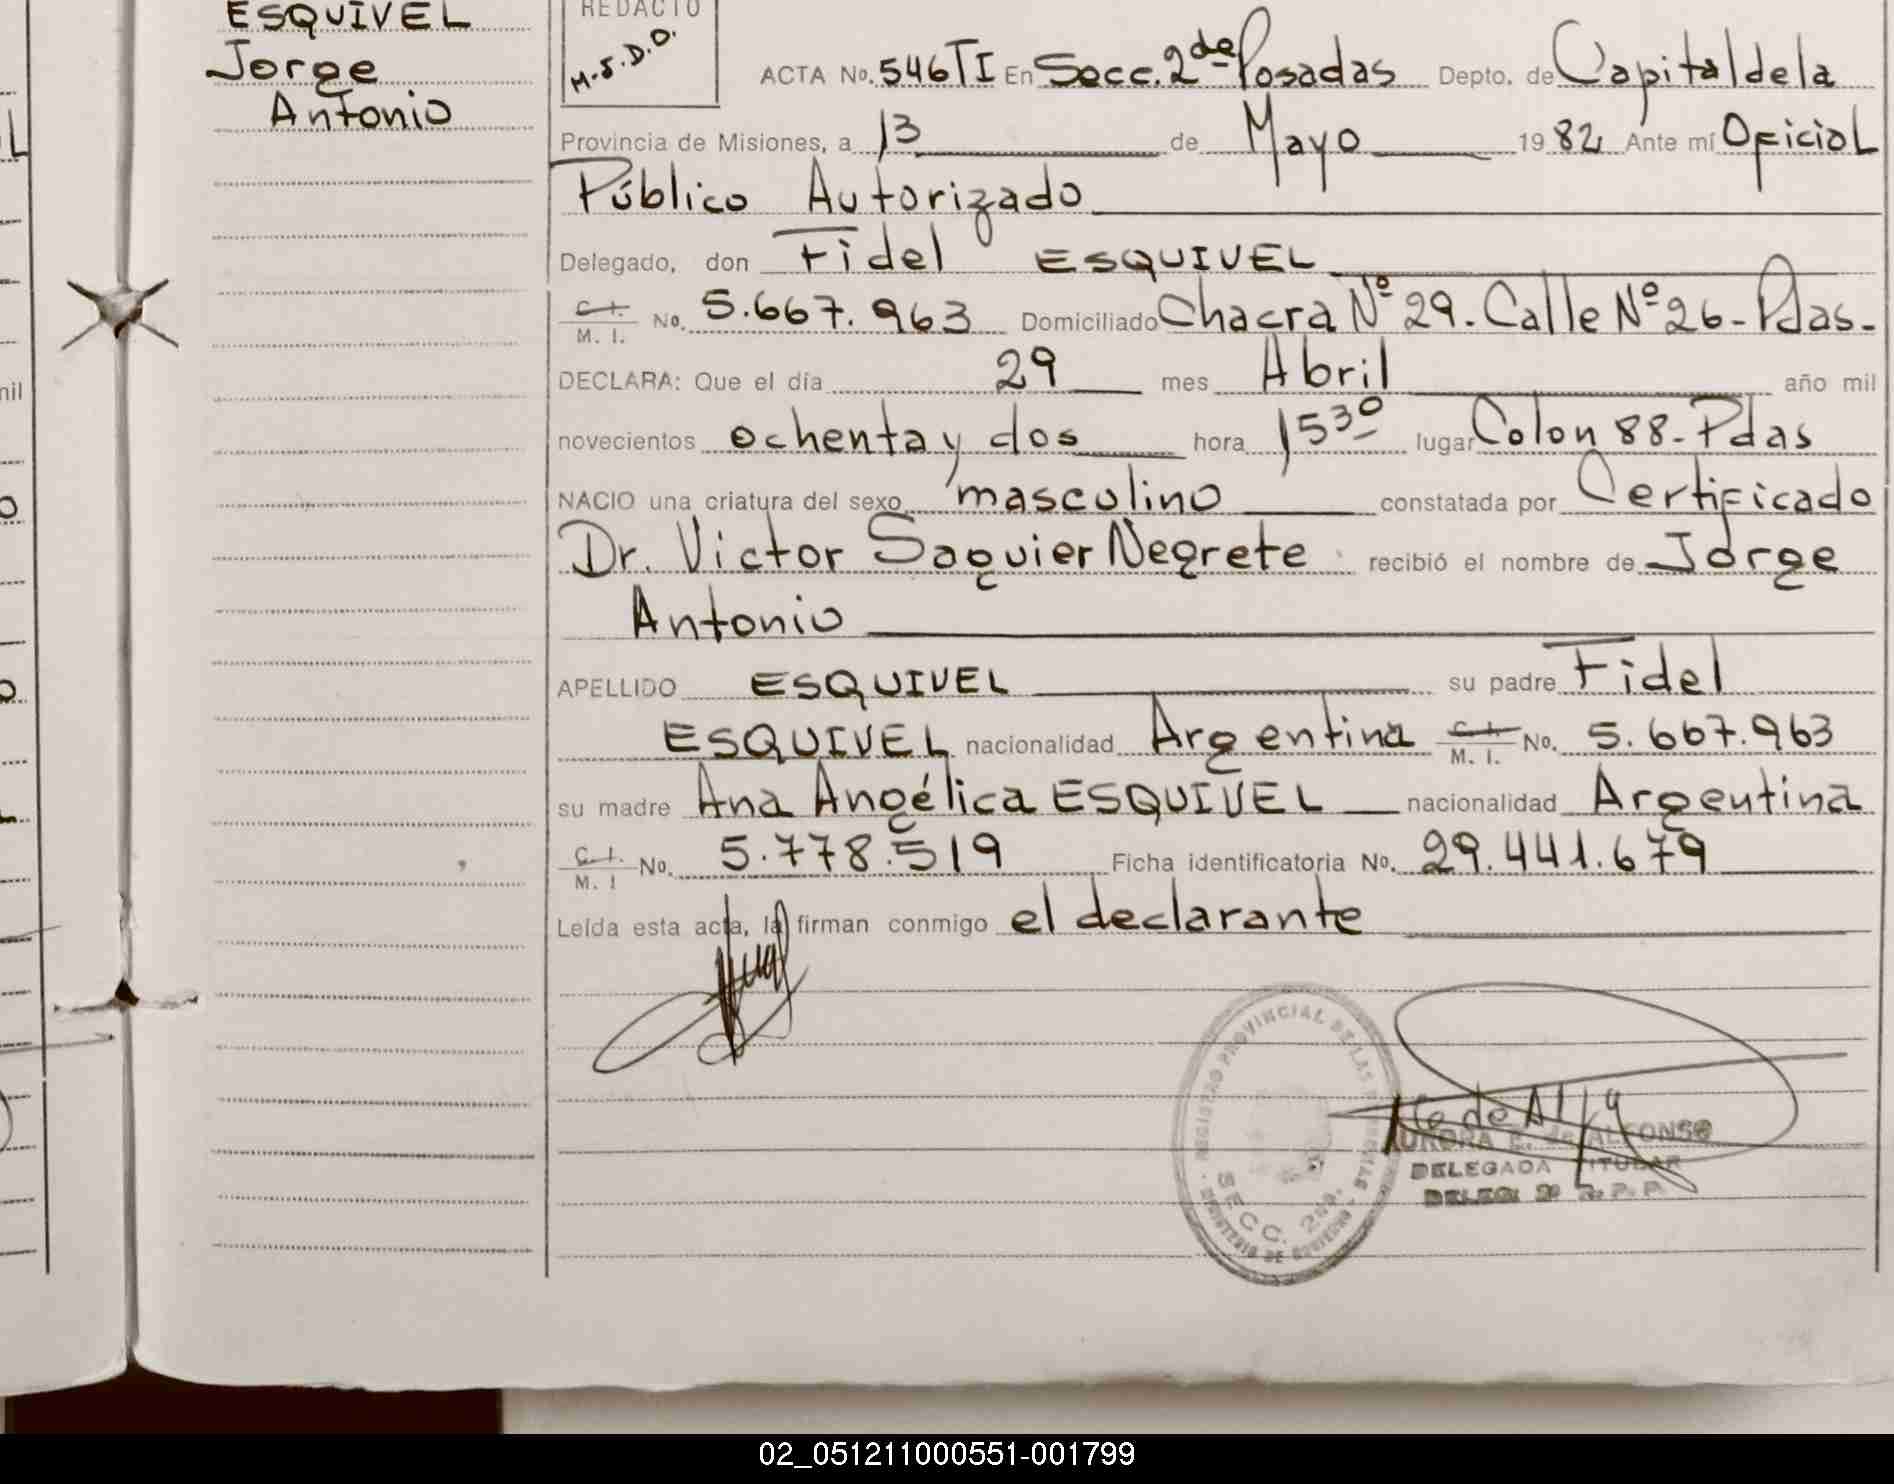 ESQUIVEL
Jorge
Antonio
REDACTO
M.S.D.O.
ACTA No. 546 TI En Secc. 2da Posadas Depto. de Capital de la
Provincia de Misiones, a 13 de Mayo 1982 Ante mí Oficial
Público Autorizado
Delegado, don Fidel ESQUIVEL
C. I. M. I. No. 5.667.963 Domiciliado Chacra Nº 29 - Calle Nº 26 - Pdas.
DECLARA: Que el día 29 mes Abril año mil
novecientos ochenta y dos hora 15 30 lugar Colon 88 - Pdas
NACIO una criatura del sexo masculino constatada por Certificado
Dr. Victor Saguier Negrete recibió el nombre de Jorge
Antonio
APELLIDO ESQUIVEL su padre Fidel
ESQUIVEL nacionalidad Argentina C. I. M. I. No. 5.667.963
su madre Ana Angélica ESQUIVEL nacionalidad Argentina
C. I. M. I No. 5.778.519 Ficha identificatoria No. 29.441.679
Leída esta acta, la firman conmigo el declarante
REGISTRO PROVINCIAL DE LAS
SECC. 2da.
MINISTERIO DE GOBIERNO
AURORA E. de ALFONSO
DELEGADA TITULAR
02_051211000551-001799